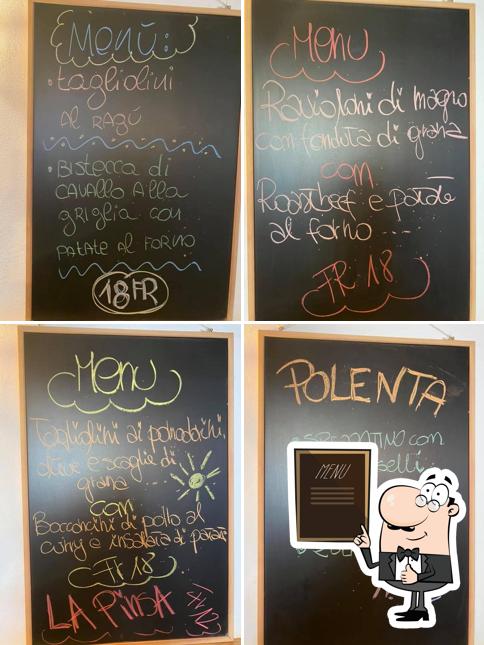 Menù:
• tagliolini
Al RAGÚ
• Bistecca di
CAVALLO Alla
griglia con
PATATE Al FORNO
18 FR
MENU
Ravioloni di magro
con fonduta di grana
con
Roastbeef e patate
al forno ...
FR 18
Menu
Tagliolini ai pomodorini,
olive e scaglie di
grana
con
Bocconcini di pollo al
curry e insalata di patate
Fr 18
LA PINSA
POLENTA
con
selli
MENU